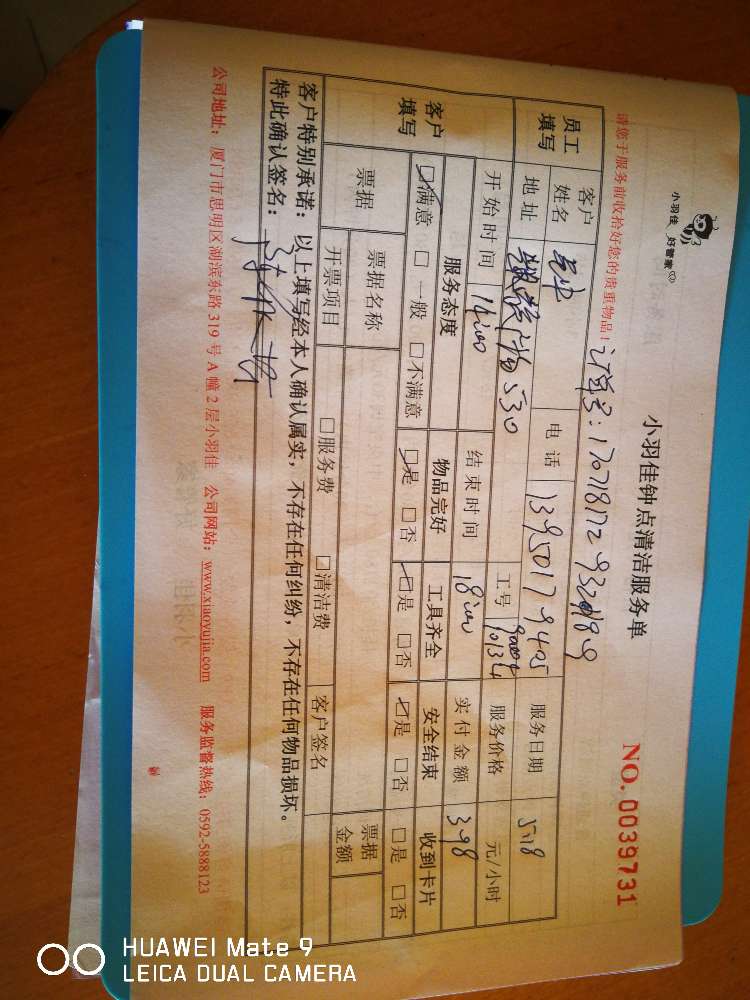 小羽佳 好管家
小羽佳钟点清洁服务单
NO. 0039731
请您于服务前收拾好您的贵重物品！
订单号：
员工填写
客户姓名
电话 13950179405
服务日期 5.18
地址 530
工号
服务价格 元/小时
开始时间 14:00
结束时间 18:00
实付金额 398
客户填写
服务态度 物品完好 工具齐全 安全结束 收到卡片
☑满意 □一般 □不满意 ☑是 □否 ☑是 □否 ☑是 □否 □是 □否
票据
票据名称
票据金额
开票项目 □服务费 □清洁费 客户签名
客户特别承诺：以上填写经本人确认属实，不存在任何纠纷，不存在任何物品损坏。
特此确认签名：
公司地址：厦门市思明区湖滨东路319号A幢2层小羽佳 公司网站：www.xiaoyujia.com 服务监督热线：0592-5888123
HUAWEI Mate 9
LEICA DUAL CAMERA